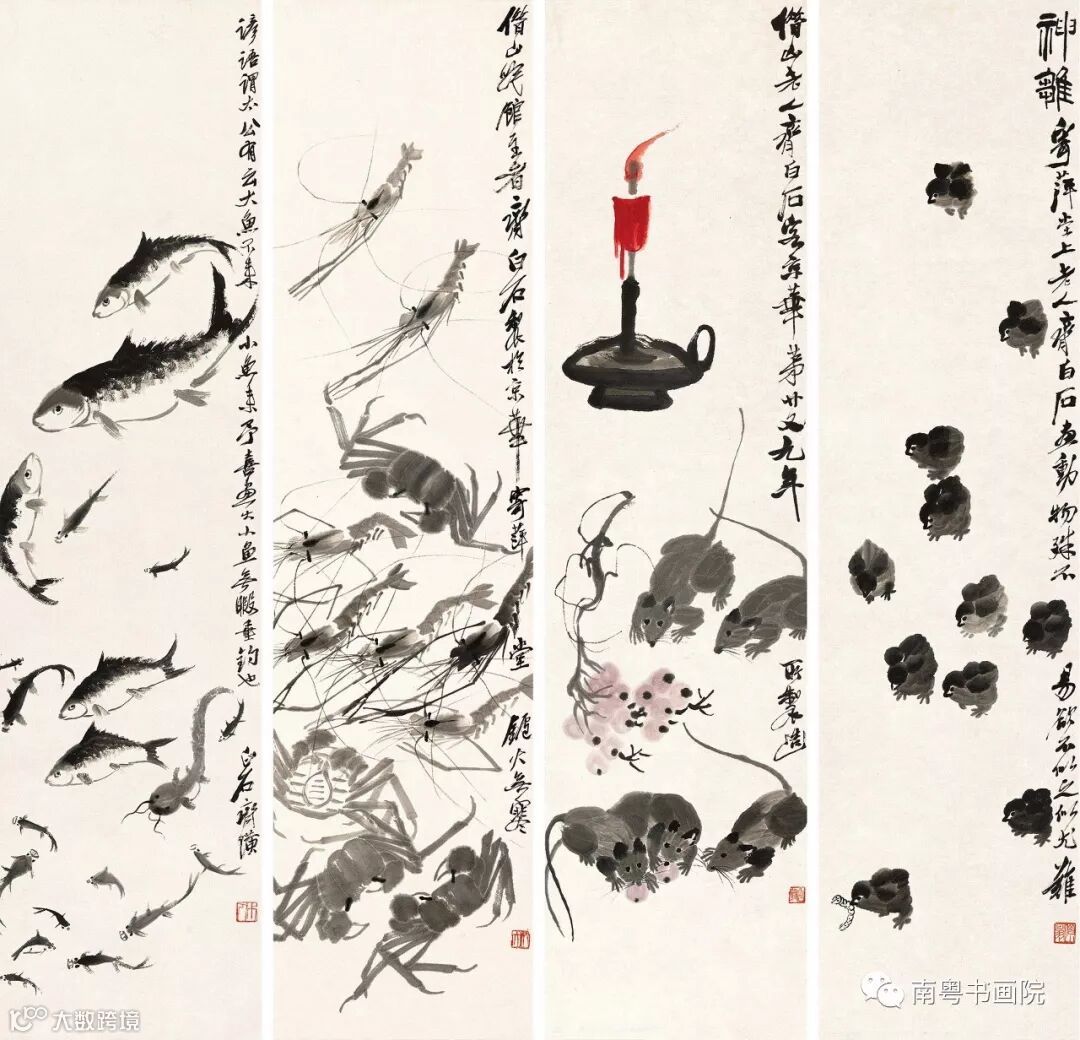 神雛 寄萍堂上老人齊白石畫動物殊不易欲不似之似尤難
借山老人齊白石客京華第廿又九年
所製造
借山吟館主者齊白石製於京華寄萍堂鑪火無寒
諺語謂太公有云大魚不來小魚來予喜畫大小魚無暇垂釣也
白石齊璜
南粤书画院
大数跨境